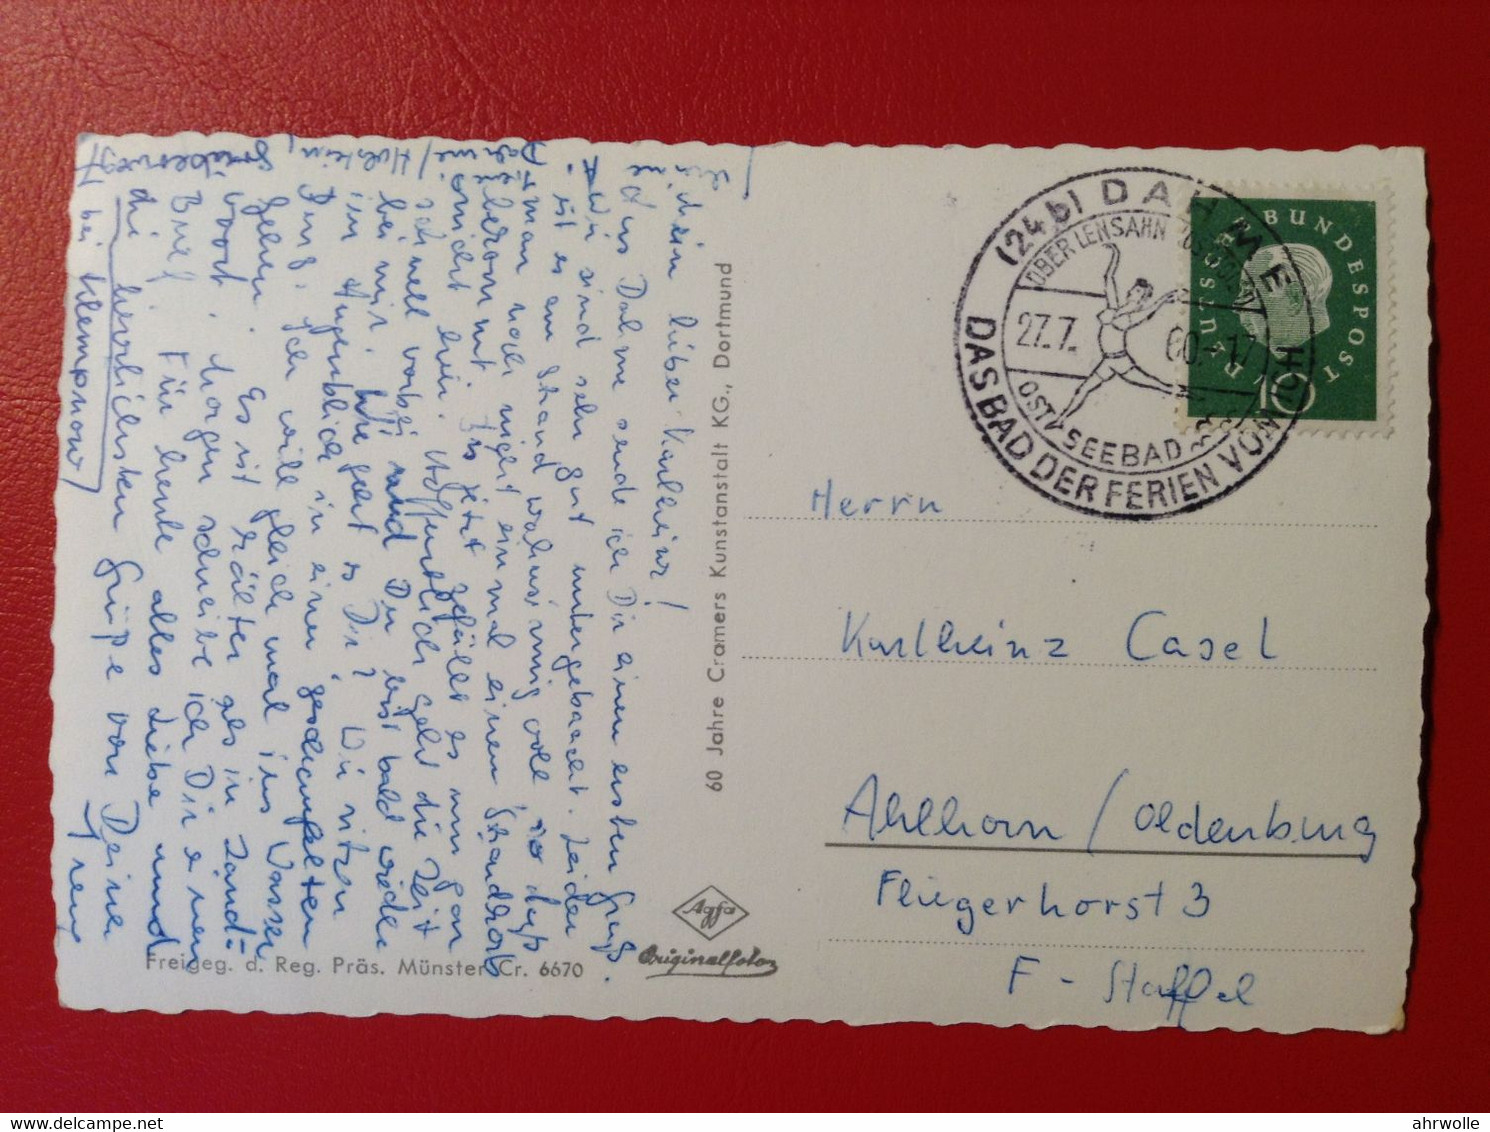 Mein lieber Karlheinz!
Aus Dahme sende ich Dir einen ersten Gruß.
Wir sind sehr gut untergebracht. Leider
ist es am Strand wahnsinnig voll, so daß
man noch nicht einmal einen Strandkorb
bekommt. Bis jetzt gefällt es mir gar
nicht hier. Hoffentlich geht die Zeit
schnell vorbei und Du bist bald wieder
bei mir. Wie geht es Dir? Wir sitzen
im Augenblick in einer geschaufelten
Burg. Ich will gleich mal ins Wasser
gehen. Es ist kälter als in
voort. Morgen schreibe ich Dir einen
Brief. Für heute alles Liebe und
die herrlichsten Grüße von Deiner
bei Klempnow
Dahme / Holstein
60 Jahre Cramers Kunstanstalt KG., Dortmund
Freigeg. d. Reg. Präs. Münster Cr. 6670
Agfa
Originalfoto
(24b) DAHME HOLST
ÜBER LENSAHN
27.7. 60.-17
OSTSEEBAD
DAS BAD DER FERIEN VOM
DEUTSCHE BUNDESPOST
10
Herrn
Karlheinz Casel
Ahlhorn / Oldenburg
Fliegerhorst 3
F - Staffel
www.delcampe.net
ahrwolle